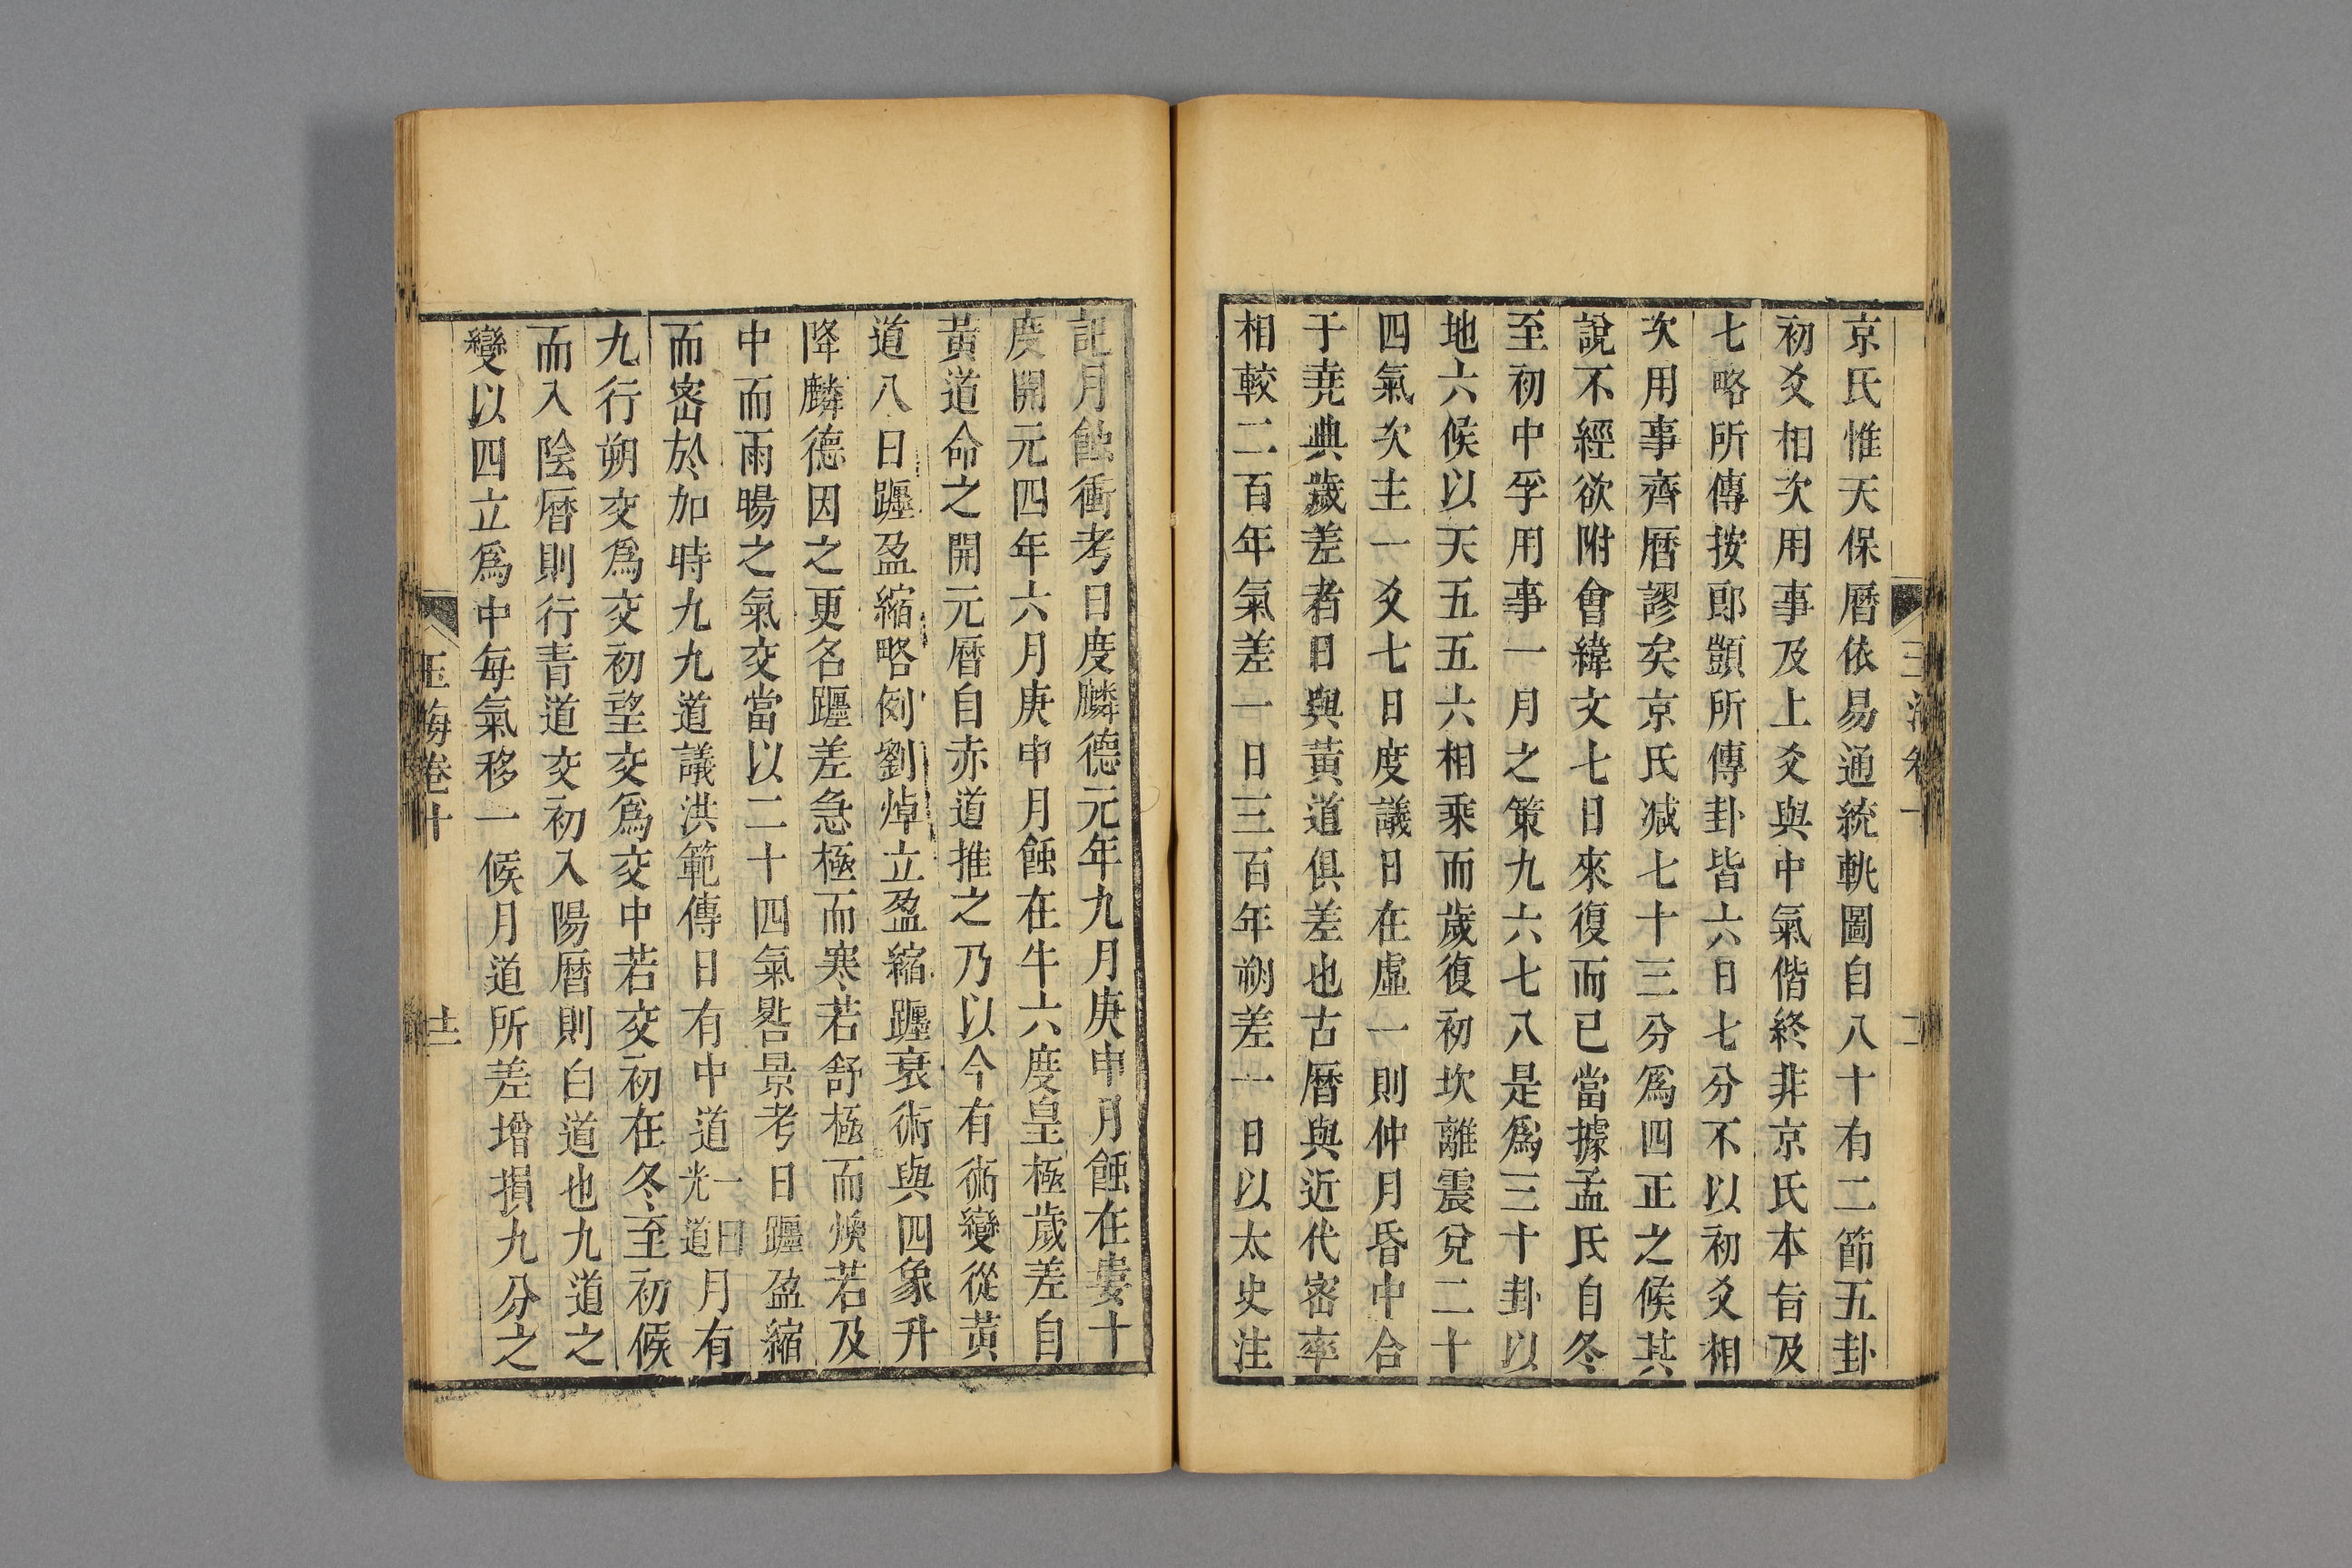 京氏惟天保曆依易通統軌圖自八十有二節五卦
初爻相次用事及上爻與中氣偕終非京氏本旨及
七略所傳按郎顗所傳卦皆六日七分不以初爻相
次用事齊曆謬矣京氏減七十三分爲四正之候其
說不經欲附會緯文七日來復而已當據孟氏自冬
至初中孚用事一月之策九六七八是爲三十卦以
地六候以天五五六相乘而歲復初坎離震兌二十
四氣次主一爻七日度議日在虛一則仲月昏中合
于堯典歲差者日與黃道俱差也古曆與近代密率
相較二百年氣差一日三百年朔差一日以太史注
記月蝕衝考日度麟德元年九月庚申月蝕在婁十
度開元四年六月庚申月蝕在牛六度皇極歲差自
黃道命之開元曆自赤道推之乃以今有術變從黃
道八日躔盈縮略例劉焯立盈縮躔衰術與四象升
降麟德因之更名躔差急極而寒若舒極而燠若及
中而雨暘之氣交當以二十四氣晷景考日躔盈縮
而密於加時九九道議洪範傳日有中道一曰光道月有
九行朔交爲交初望交爲交中若交初在冬至初候
而入陰曆則行青道交初入陽曆則白道也九道之
變以四立爲中每氣移一候月道所差增損九分之
玉海卷十
十二